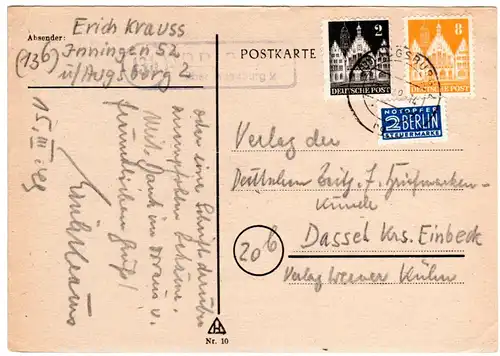 Absender:
Erich Krauss
(13b) Inningen 52
ü/Augsburg 2
POSTKARTE
2
DEUTSCHE POST
8
DEUTSCHE POST
NOTOPFER
2 BERLIN
STEUERMARKE
15. III. 49
oder eine Schrift darüber
bekäme.
Mit Dank im voraus u.
freundlichem Gruß!
Erich Krauss
Verlag der
Deutschen Zeitg. f. Briefmarken-
kunde
20b
Dassel Krs. Einbeck
Verlag Werner Kühn
Nr. 10